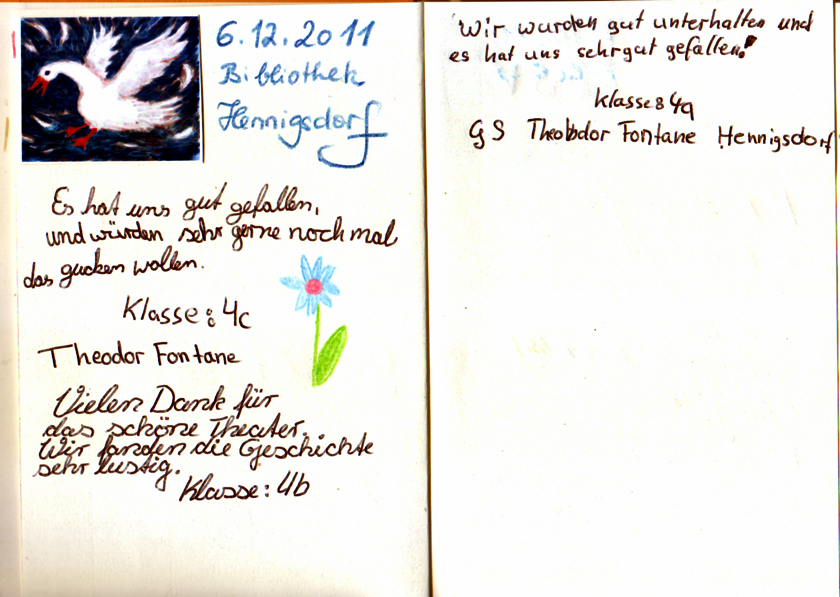 6.12.2011
Bibliothek
Hennigsdorf
Es hat uns gut gefallen,
und würden sehr gerne noch mal
das gucken wollen.
Klasse: 4c
Theodor Fontane
Vielen Dank für
das schöne Theater.
Wir fanden die Geschichte
sehr lustig.
Klasse: 4b
Wir wurden gut unterhalten und
es hat uns sehr gut gefallen!
Klasse 4a
GS Theodor Fontane Hennigsdorf